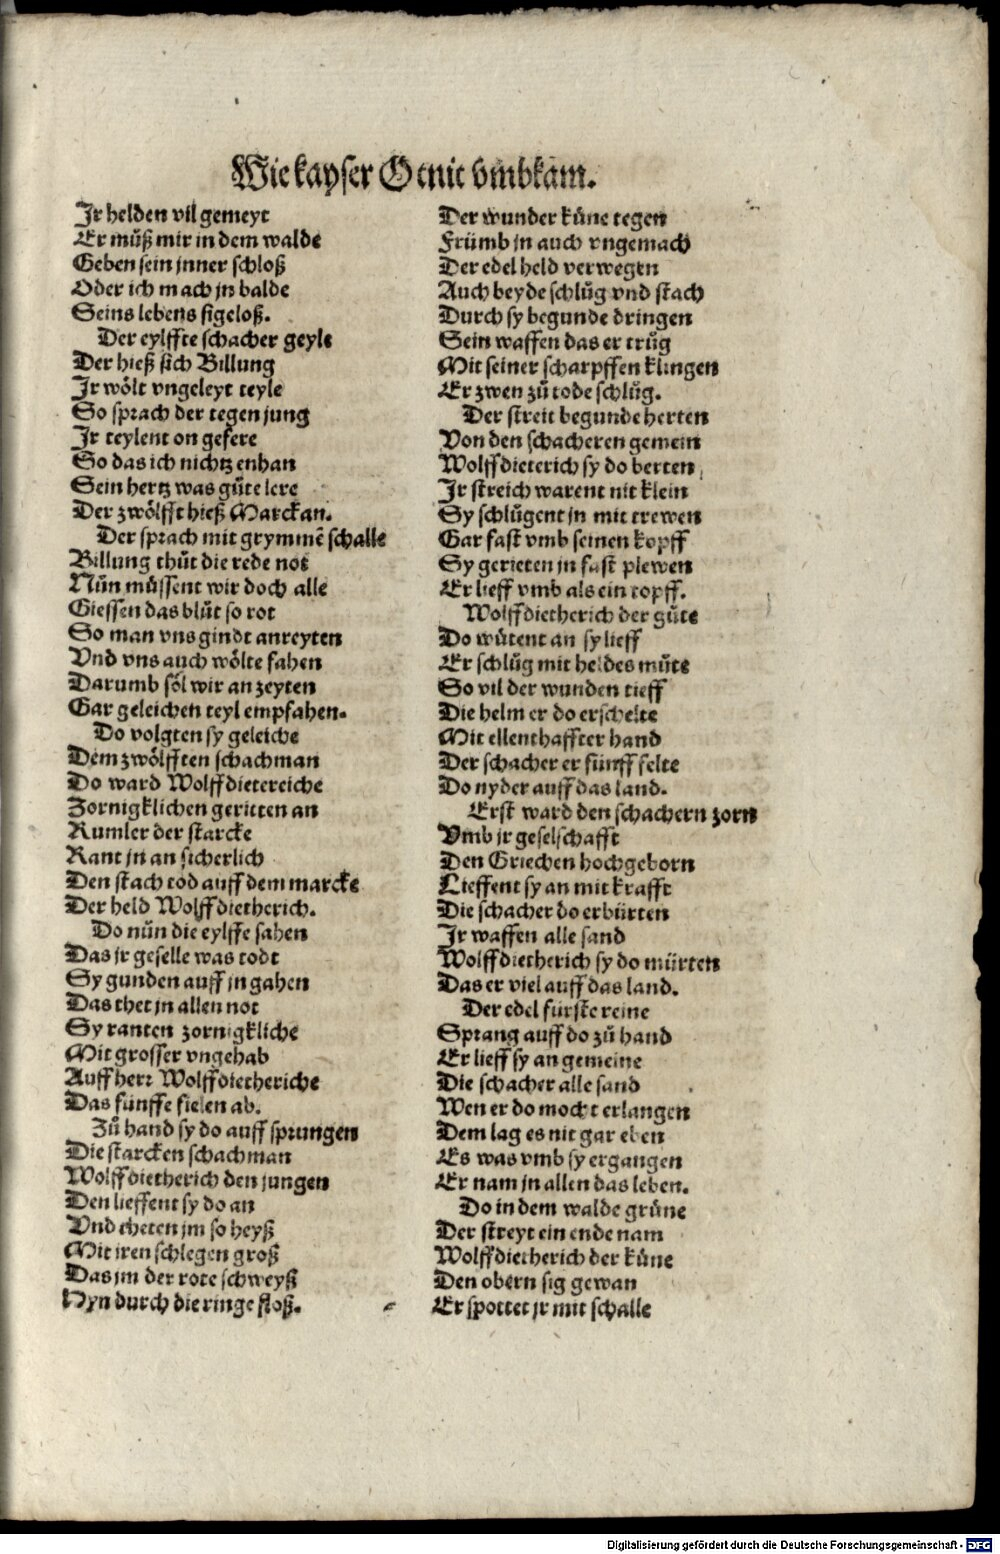 Wie kayser Otnit vmbkam.
Jr helden vil gemeyt
Er můß mir in dem walde
Geben sein jnner schloß
Oder ich mach jn balde
Seins lebens sigeloß.
Der eylffte schacher geyle
Der hieß sich Billung
Jr wölt vngeleyt teyle
So sprach der tegen jung
Jr teylent on gefere
So das ich nichtz enhan
Sein hertz was gůte lere
Der zwölfft hieß Marckan.
Der sprach mit grymmē schalle
Billung thůt die rede not
Nůn müssent wir doch alle
Giessen das blůt so rot
So man vns gindt anreyten
Vnd vns auch wölte fahen
Darumb söl wir an zeyten
Gar geleichen teyl empfahen.
Do volgten sy geleiche
Dem zwölfften schachman
Do ward Wolffdietereiche
Zornigklichen geritten an
Rumler der starcke
Rant jn an sicherlich
Den stach tod auff dem marcke
Der held Wolffdietherich.
Do nůn die eylffe sahen
Das jr geselle was todt
Sy gunden auff jn gahen
Das thet jn allen not
Sy ranten zornigkliche
Mit grosser vngehab
Auff herr Wolffdietheriche
Das fünffe fielen ab.
Zů hand sy do auff sprungen
Die starcken schachman
Wolffdietherich den jungen
Den lieffent sy do an
Vnd theten jm so heyß
Mit iren schlegen groß
Das jm der rote schweyß
Hyn durch die ringe floß.
Der wunder küne tegen
Frümb jn auch vngemach
Der edel held verwegen
Auch beyde schlůg vnd stach
Durch sy begunde dringen
Sein waffen das er trůg
Mit seiner scharpffen klingen
Er zwen zů tode schlůg.
Der streit begunde herten
Von den schacheren gemein
Wolffdieterich sy do berten
Jr streich warent nit klein
Sy schlůgent jn mit trewen
Gar fast vmb seinen kopff
Sy gerieten jn fast plewen
Er lieff vmb als ein topff.
Wolffdietherich der gůte
Do wůtent an sy lieff
Er schlůg mit heldes můte
So vil der wunden tieff
Die helm er do erschelte
Mit ellenthaffter hand
Der schacher er fünff felte
Do nyder auff das land.
Erst ward den schachern zorn
Vmb jr geselschafft
Den Griechen hochgeborn
Lieffent sy an mit krafft
Die schacher do erbürten
Jr waffen alle sand
Wolffdietherich sy do mürten
Das er viel auff das land.
Der edel fürste reine
Sprang auff do zů hand
Er lieff sy an gemeine
Die schacher alle sand
Wen er do mocht erlangen
Dem lag es nit gar eben
Es was vmb sy ergangen
Er nam jn allen das leben.
Do in dem walde grüne
Der streyt ein ende nam
Wolffdietherich der küne
Den obern sig gewan
Er spottet jr mit schalle
Digitalisierung gefördert durch die Deutsche Forschungsgemeinschaft - DFG